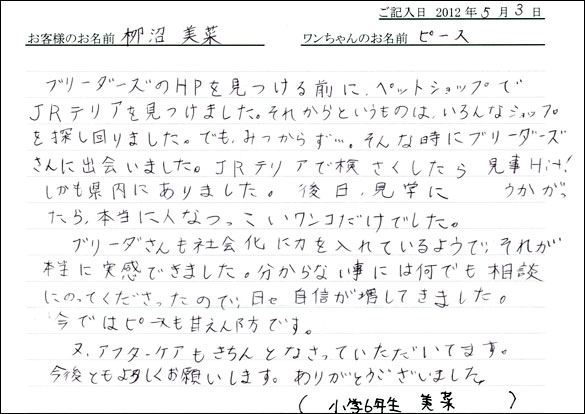 ご記入日 2012年5月3日
お客様のお名前 柳沼 美菜 ワンちゃんのお名前 ピース
ブリーダーズのHPを見つける前に、ペットショップで
JRテリアを見つけました。それからというものは、いろんなショップ
を探し回りました。でも、みつからず…。そんな時にブリーダーズ
さんに出会いました。JRテリアで検さくしたら 見事Hit!
しかも県内にありました。後日、見学に うかがっ
たら、本当に人なつっこいワンコだけでした。
ブリーダさんも社会化に力を入れているようで、それが
本当に実感できました。分からない事には何でも相談
にのってくださったので、日々自信が増してきました。
今ではピースも甘えん坊です。
又、アフターケアもきちんとなさっていただいてます。
今後ともよろしくお願いします。ありがとうございました。
(小学6年生 美菜 )